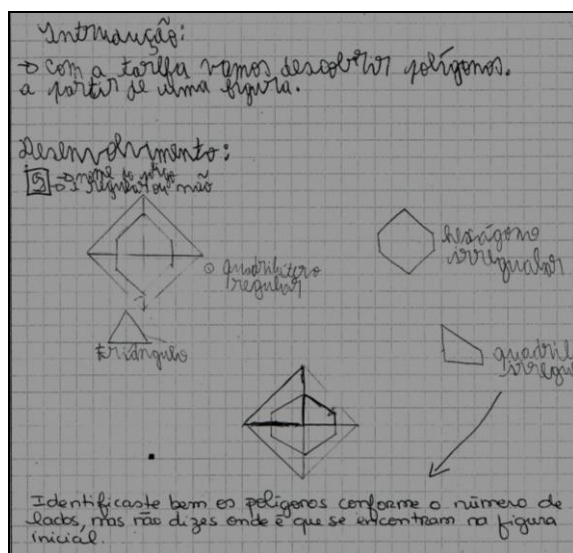 Introdução:
→ Com a tarefa vamos descobrir polígonos.
a partir de uma figura.
Desenvolvimento:
5 → nome do
→ regular ou não
hexágono
irregualar
quadrilátero
regular
triângulo
quadril
irregu
Identificaste bem os polígonos conforme o número de
lados, mas não dizes onde é que se encontram na figura
inicial.